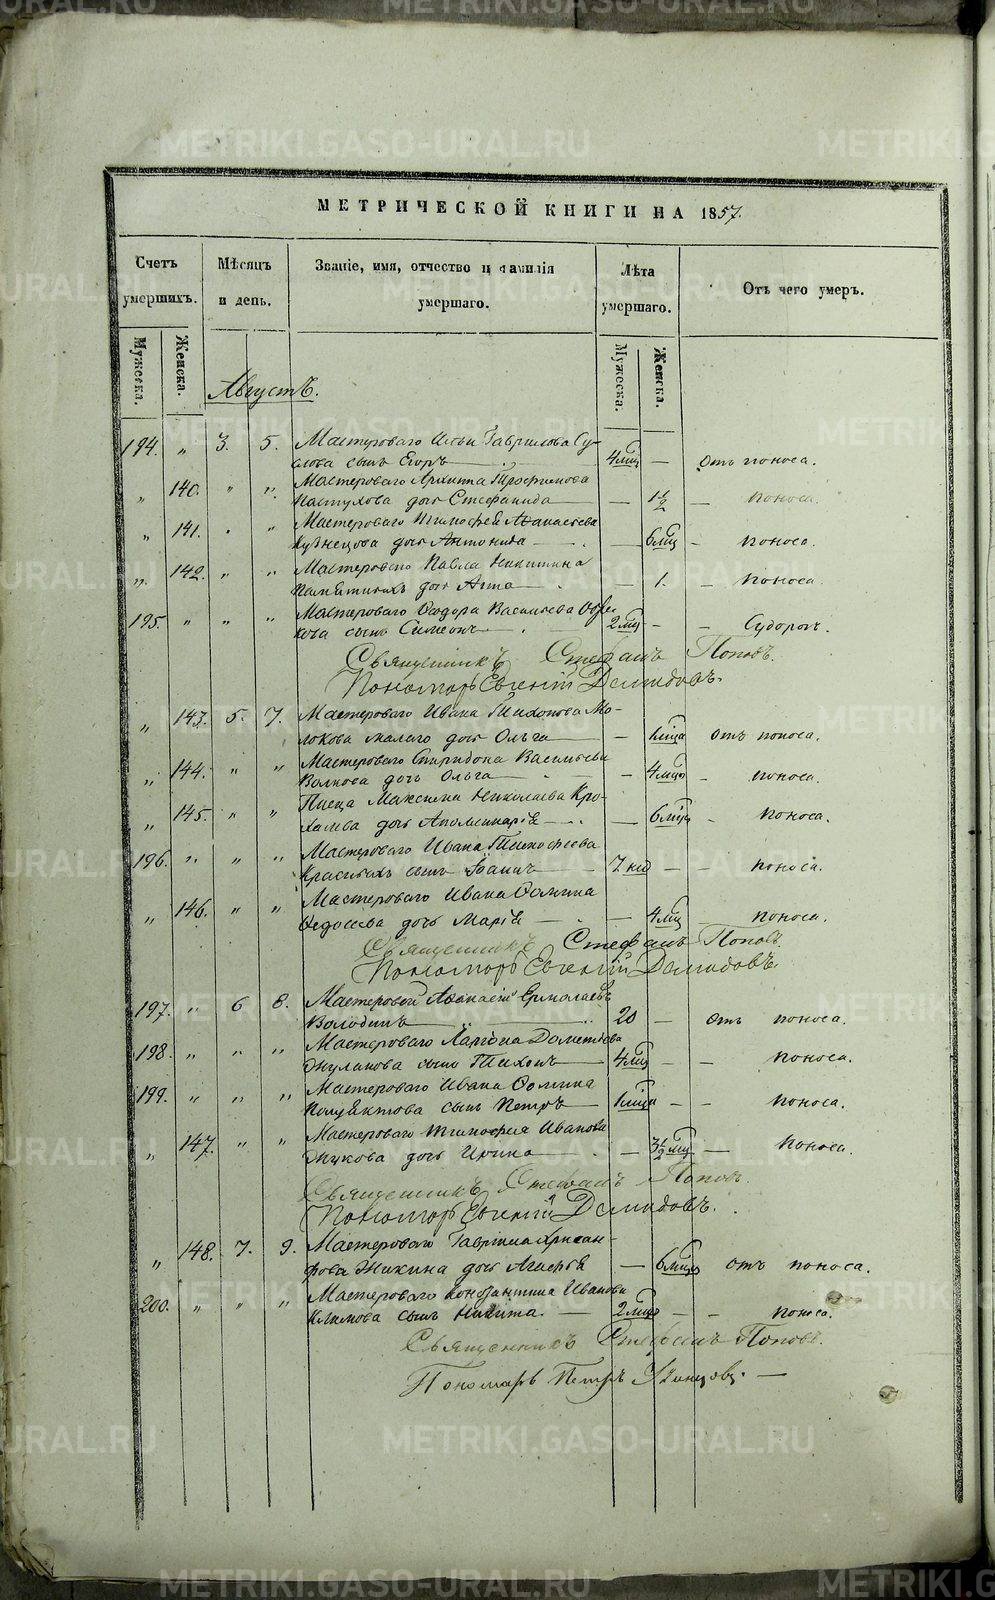 МЕТРИЧЕСКОЙ КНИГИ НА 1857.
Счетъ умершихъ. Мѣсяцъ и день. Званіе, имя, отчество и фамилія умершаго. Лѣта умершаго. Отъ чего умеръ.
Мужеска. Женска. Мужеска. Женска.
Августъ.
194. „ 3. 5. Мастероваго Ильи Гаврилова Су-
слова сынъ Егоръ 4 мца — отъ поноса.
„ 140. „ „ Мастероваго Архипа Трофимова
Пастухова дочь Стефанида — 1½ — поноса.
„ 141. „ „ Мастероваго Тимофея Аѳанасьева
Кузнецова дочь Антонида — 6 мцъ — поноса.
„ 142. „ „ Мастероваго Павла Никитина
дочь Анна — 1. — поноса.
195. „ „ „ Мастероваго Ѳеодора Васильева
сынъ Симеонъ 2 мца — — Судорог.
Священникъ Стефанъ Поповъ.
Пономарь Евгеній Демидовъ.
„ 143. 5. 7. Мастероваго Ивана Тихонова Мо-
локова малаго дочь Ольга — 1 мца отъ поноса.
„ 144. „ „ Мастероваго Спиридона Васильева
Волкова дочь Ольга — 4 мца — поноса.
„ 145. „ „ Писца Максима Николаева Кро-
халева дочь Аполинарія — 6 мцъ — поноса.
196. „ „ „ Мастероваго Ивана Тимофеева
Красныхъ сынъ Іоаннъ 7 нед — — поноса.
„ 146. „ „ Мастероваго Ивана Ѳомина
Ѳедосеева дочь Марія — 4 мца — поноса.
Священникъ Стефанъ Поповъ.
Пономарь Евгеній Демидовъ.
197. „ 6 8. Мастеровой Аѳанасій Ермолаевъ
Володинъ 20 — отъ поноса.
198. „ „ „ Мастероваго Ларіона
Жуланова сынъ Тихонъ 4 мца — — поноса.
199. „ „ „ Мастероваго Ивана Ѳомина
Полуяктова сынъ Петръ 1 мца — — поноса.
„ 147. „ „ Мастероваго Тимофея Иванова
Жукова дочь Ирина — 3½ мца — поноса.
Священникъ Стефанъ Поповъ.
Пономарь Евгеній Демидовъ.
„ 148. 7. 9. Мастероваго Гавріила Хрисан-
фова Жикина дочь Агафья — 6 мцъ отъ поноса.
200. „ „ „ Мастероваго Константина Иванова
Климова сынъ Никита. 2 мца — — поноса.
Священникъ Стефанъ Поповъ.
Пономарь Петръ
METRIKI.GASO-URAL.RU